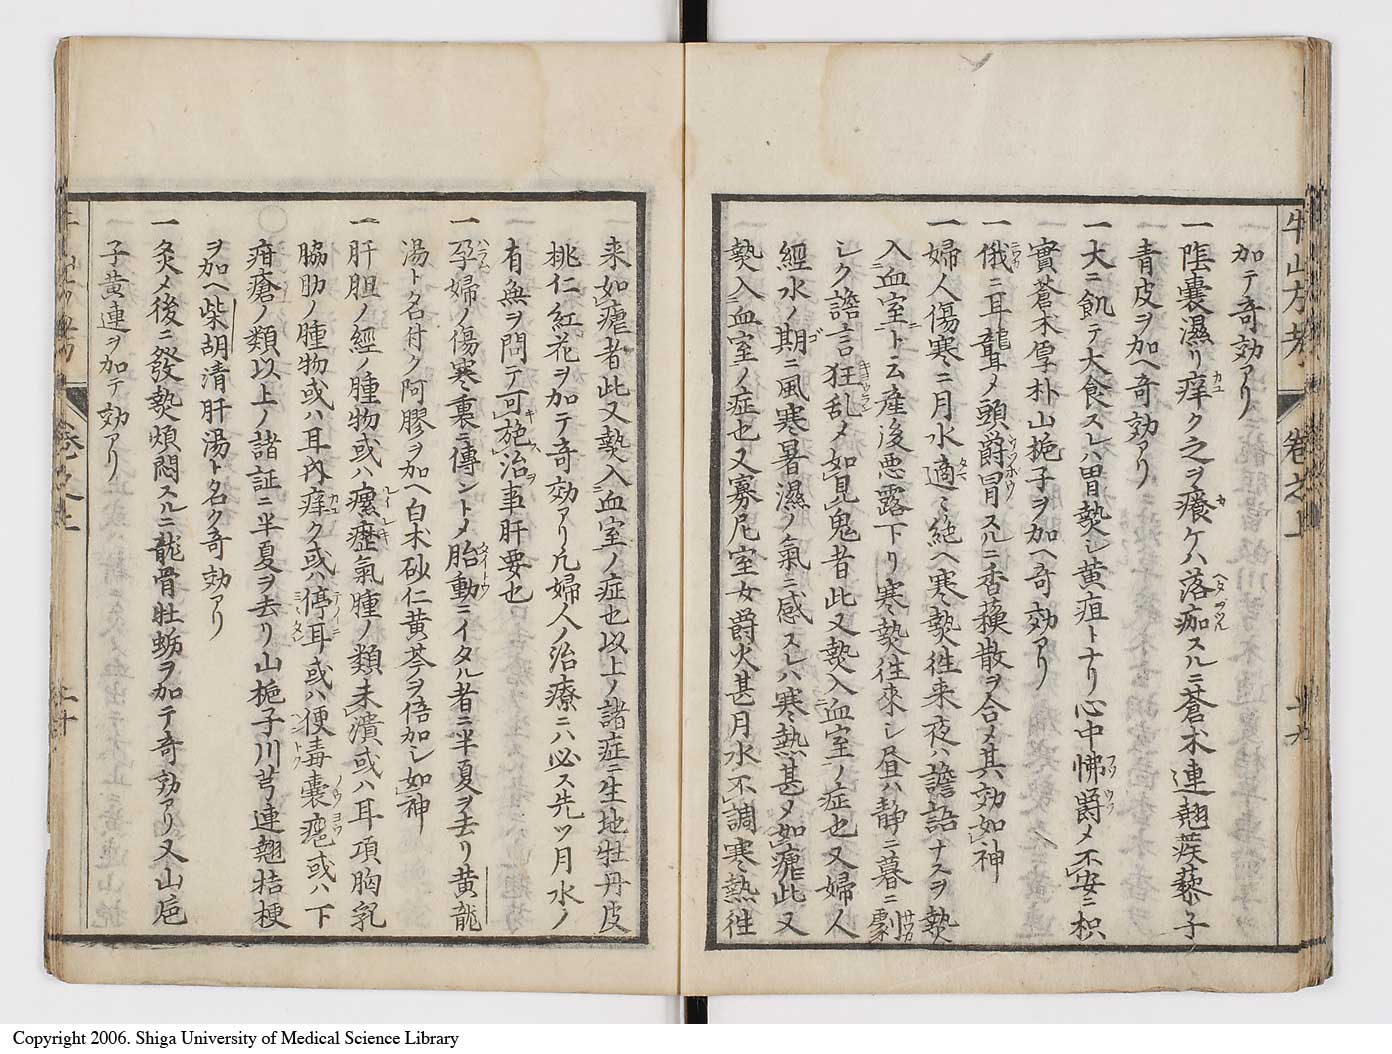 加テ奇効アリ
一陰嚢濕リ痒ク之ヲ癢ケハ落痂スルニ蒼朮連翹蒺藜子
青皮ヲ加ヘ奇効アリ
一大ニ飢テ大食スレハ胃熱シ黄疸トナリ心中怫欝メ不安ニ枳
實蒼朮厚朴山梔子ヲ加ヘ奇効アリ
一俄ニ耳聾メ頭欝冒スルニ香蘓散ヲ合メ其効如神
一婦人傷寒ニ月水適ミ絶ヘ寒熱徃来夜ハ譫語ナスヲ熱
入血室ト云産後悪露下リ寒熱徃來シ昼ハ静ニ暮ニ劇
シク譫言狂乱メ如見鬼者此又熱入血室ノ症也又婦人
經水ノ期ニ風寒暑濕ノ氣ニ感スレハ寒熱甚メ如瘧此又
熱入血室ノ症也又寡尼室女欝火甚月水不調寒熱徃
牛山方考 巻之上 二十九
来如瘧者此又熱入血室ノ症也以上ノ諸症ニ生地牡丹皮
桃仁紅花ヲ加テ奇効アリ凡婦人ノ治療ニハ必ス先ツ月水ノ
有無ヲ問テ可施治事肝要也
一孕婦ノ傷寒裏ニ傳ントメ胎動ニイタル者ニ半夏ヲ去リ黄龍
湯ト名付ク阿膠ヲ加ヘ白朮砂仁黄芩ヲ倍加シ如神
一肝胆ノ經ノ腫物或ハ瘰癧氣腫ノ類未潰或ハ耳項胸乳
脇肋ノ腫物或ハ耳内痒ク或ハ停耳或ハ便毒嚢癰或ハ下
疳瘡ノ類以上ノ諸証ニ半夏ヲ去リ山梔子川芎連翹桔梗
ヲ加ヘ柴胡清肝湯ト名ク奇効アリ
一灸メ後ニ發熱煩悶スルニ龍骨牡蛎ヲ加テ奇効アリ又山梔
子黄連ヲ加テ効アリ
Copyright 2006. Shiga University of Medical Science Library